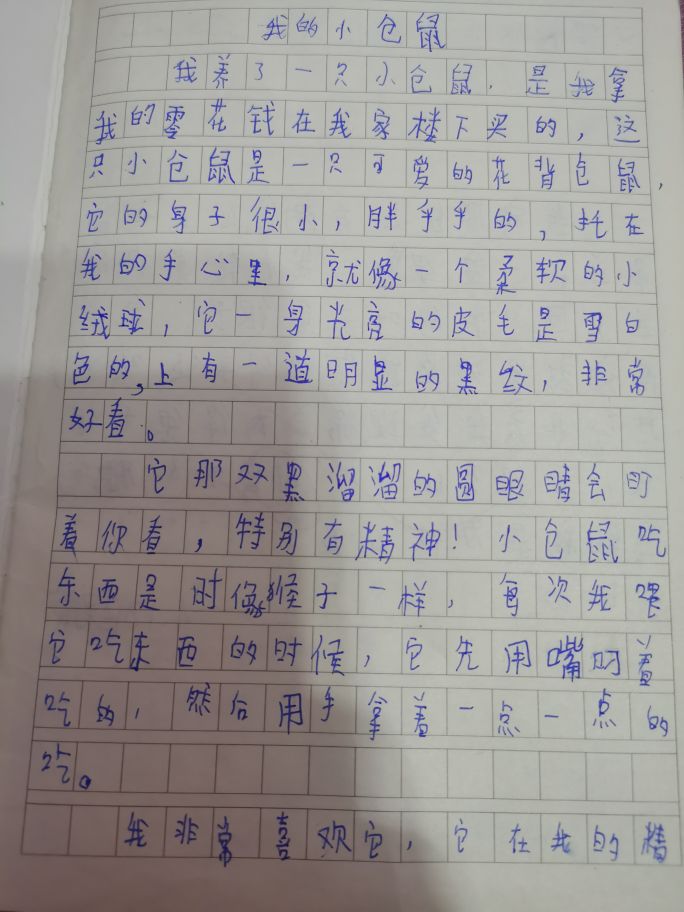 我的小仓鼠
我养了一只小仓鼠，是我拿
我的零花钱在我家楼下买的，这
只小仓鼠是一只可爱的花背仓鼠，
它的身子很小，胖乎乎的，托在
我的手心里，就像一个柔软的小
绒球，它一身光亮的皮毛是雪白
色的，上有一道明显的黑纹，非常
好看。
它那双黑溜溜的圆眼睛会盯
着你看，特别有精神！小仓鼠吃
东西是时像猴子一样，每次我喂
它吃东西的时候，它先用嘴叼着
吃的，然后用手拿着一点一点的
吃。
我非常喜欢它，它在我的精